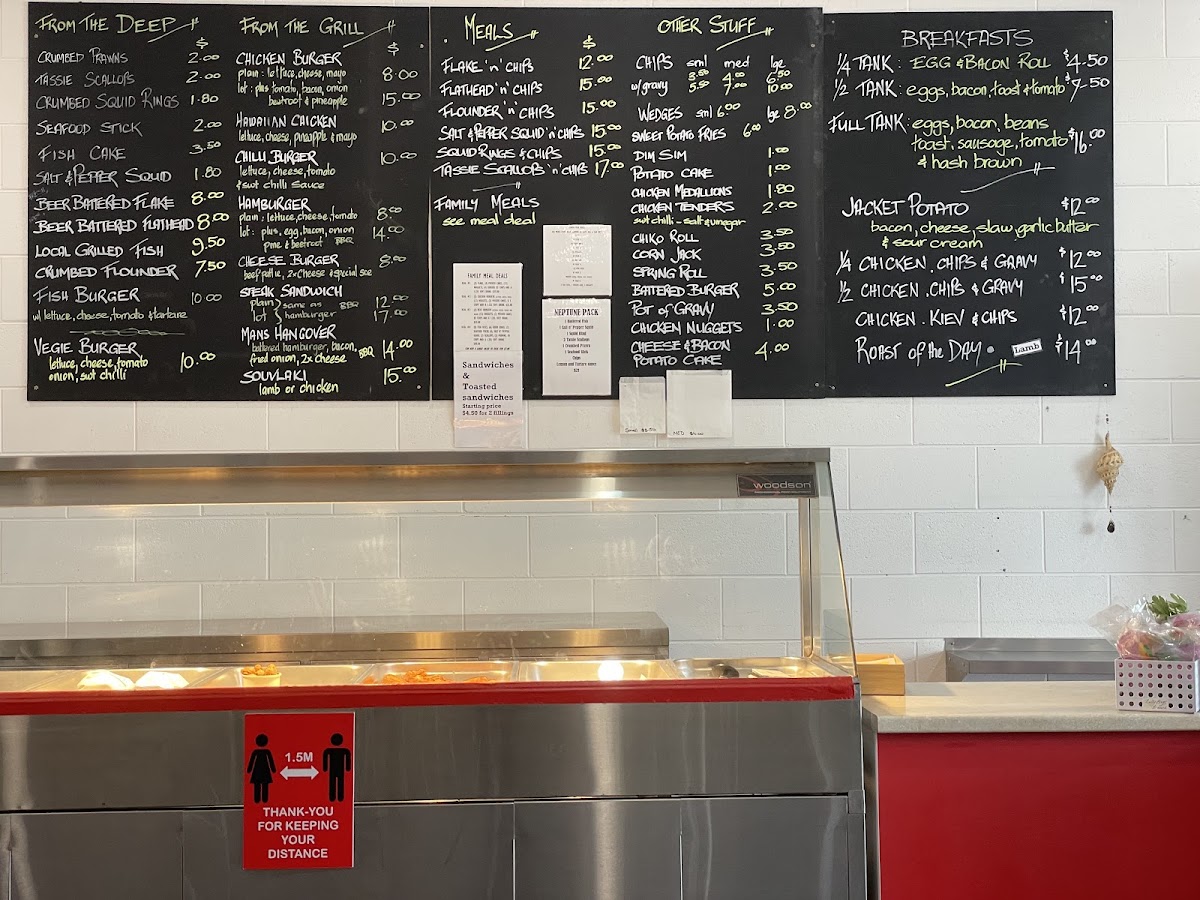 FROM THE DEEP
$
CRUMBED PRAWNS 2.00
TASSIE SCALLOPS 2.00
CRUMBED SQUID RINGS 1.80
SEAFOOD STICK 2.00
FISH CAKE 3.50
SALT & PEPPER SQUID 1.80
BEER BATTERED FLAKE 8.00
BEER BATTERED FLATHEAD 8.00
LOCAL GRILLED FISH 9.50
CRUMBED FLOUNDER 7.50
FISH BURGER 10.00
w/ lettuce, cheese, tomato & tartare
VEGIE BURGER
lettuce, cheese, tomato 10.00
onion, swt chilli
FROM THE GRILL
$
CHICKEN BURGER
plain: lettuce, cheese, mayo 8.00
lot: plus tomato, bacon, onion
beetroot & pineapple 15.00
HAWAIIAN CHICKEN 10.00
lettuce, cheese, pineapple & mayo
CHILLI BURGER 10.00
lettuce, cheese, tomato
& swt chilli sauce
HAMBURGER
plain: lettuce, cheese, tomato 8.00
lot: plus, egg, bacon, onion 14.00
pine & beetroot BBQ
CHEESE BURGER 8.00
beef pattie, 2x cheese & special sce
STEAK SANDWICH
plain } same as BBQ 12.00
lot } hamburger 17.00
MANS HANGOVER
battered hamburger, bacon, BBQ 14.00
fried onion, 2x cheese
SOUVLAKI 15.00
lamb or chicken
MEALS
$
FLAKE 'n' CHIPS 12.00
FLATHEAD 'n' CHIPS 15.00
FLOUNDER 'n' CHIPS 15.00
SALT & PEPPER SQUID 'n' CHIPS 15.00
SQUID RINGS & CHIPS 15.00
TASSIE SCALLOPS 'n' CHIPS 17.00
FAMILY MEALS
see meal deal
FAMILY MEAL DEALS
NEPTUNE PACK
Sandwiches
&
Toasted
sandwiches
Starting price
$4.50 for 2 fillings
OTHER STUFF
CHIPS sml med lge
3.50 4.00 6.50
w/gravy 5.50 7.00 10.00
WEDGES sml 6.00 lge 8.00
SWEET POTATO FRIES 6.00
DIM SIM 1.00
POTATO CAKE 1.00
CHICKEN MEDALLIONS 1.80
CHICKEN TENDERS 2.00
swt chilli - salt & vinegar
CHIKO ROLL 3.50
CORN JACK 3.50
SPRING ROLL 3.50
BATTERED BURGER 5.00
POT OF GRAVY 3.50
CHICKEN NUGGETS 1.00
CHEESE & BACON
POTATO CAKE 4.00
MED
BREAKFASTS
1/4 TANK: EGG & BACON ROLL $4.50
1/2 TANK: eggs, bacon, toast & tomato $7.50
FULL TANK: eggs, bacon, beans
toast, sausage, tomato $16.00
& hash brown
JACKET POTATO $12.00
bacon, cheese, slaw, garlic butter
& sour cream
1/4 CHICKEN, CHIPS & GRAVY $12.00
1/2 CHICKEN, CHIPS & GRAVY $15.00
CHICKEN KIEV & CHIPS $12.00
ROAST of the DAY Lamb $14.00
woodson
1.5M
THANK-YOU
FOR KEEPING
YOUR
DISTANCE